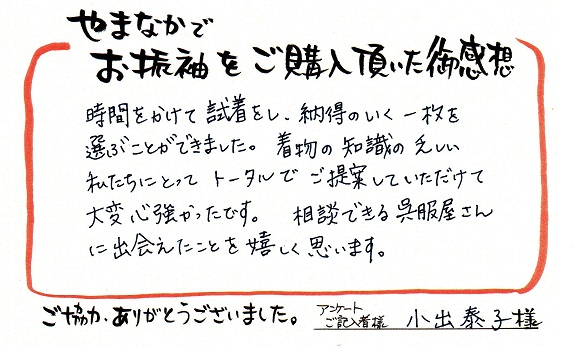 やまなかで
お振袖をご購入頂いた御感想
時間をかけて試着をし、納得のいく一枚を
選ぶことができました。着物の知識の乏しい
私たちにとってトータルでご提案していただけて
大変心強かったです。 相談できる呉服屋さん
に出会えたことを嬉しく思います。
ご協力、ありがとうございました。 アンケート
ご記入者様 小出泰子様